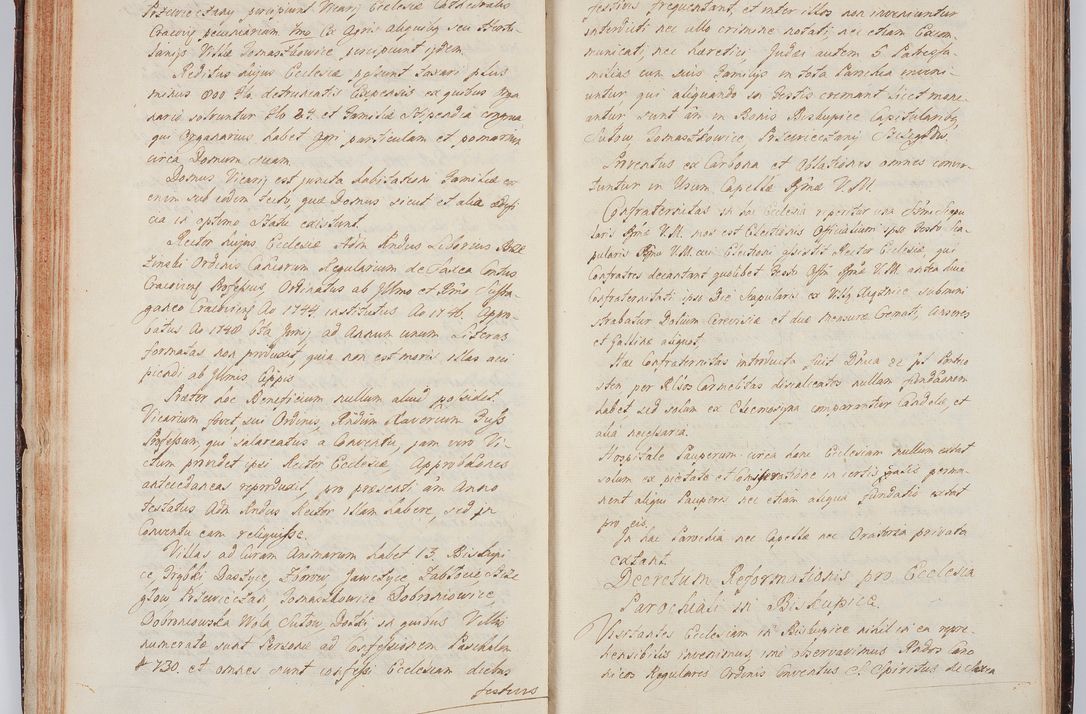 percipiunt Vicarij Ecclesiæ Cathedralis
Cracoviæ pecuniariam, imo ex Agris aliquibus seu
Villæ Tomaszkowice percipiunt ijdem.
Reditus hujus Ecclesiæ possunt taxari plus
minus 800 flo. detruncatis Expensis ex quibus Orga
nario solvuntur flo 24 et Familiæ stipendia congrua
qui Organarius habet Agri particulam et pomarium
circa Domum suam
Domus Vicarij est juncta habitationi Familiæ ex
enim sub eodem tecto, quæ Domus sicut et alia ædifi
cia in optimo statu existunt.
Rector hujus Ecclesiæ Adm Rndus Liborius
zinski Ordinis Canicorum Regularium de Saxea Contus
Cracovien Professus, Ordinatus ab Illmo et Rmo Suffra
ganeo Cracovien Ao 1744. institutus Ao 1746. Appro
batus Ao 1748 6ta Junij ad Annum unum Literas
formatas non produxit, quia non est moris illas acci
piendi ab Illmis Eppis.
Præter hoc Beneficium nullum aliud possidet
Vicarium fovet sui Ordinis, Rndum Xaverium
Professum, qui salareatus a Conventu, jam vero Vi-
ctum providet ipsi Rector Ecclesiæ, Approbaōnes
antecedaneas reproduxit, pro præsenti ām Anno
testatus Adm Rndus Rector illam habere, sed in
Conventu eam reliquisse.
Villas ad Curam Animarum habet 13. Biskupi
ce, Trąbki Darczyce, Zborow, Jawczyce Zabłocie
głow Przewieczan, Tomaszkowice Dobranowice,
Dobranowska Wola Sułow, in quibus Villis
numeratæ sunt Personæ ad Confessionem Paschalem
# 730. et omnes sunt confessi Ecclesiam diebus
festivis
festivis frequentant et inter illos non inveniuntur
interdicti nec ullo crimine notati, nec etiam Excom
municati, nec hæretici, Judæi autem 5 Patresfa-
milias cum suis Familijs in tota Parochia inveni-
untur, qui aliquando in Festis cremant licet mone
antur, sunt ān in Bonis Biskupice Capitularibus
Sułow, Tomaszkowice Przewieczany
Proventus ex Carbona et Oblationes omnes conver
tuntur in Usum Capellæ Bmæ V.M.
Confraternitas in hac Ecclesia reperitur una Ssmi Scapu
laris Bmæ V.M. mos est Electionis Officialium ipso Festo Sca-
pularis Bmæ V.M. cui Electioni assistit Rector Ecclesiæ, qui
Confratres decantant quolibet Festo Bmæ V.M. antra huic
Confraternitati ipso Die Scapularis ex Villa submini
strabatur Dolium Cerevisiæ et duæ mensuræ Cremati, Anseres
et Gallinæ aliquot.
Hac Confraternitas introducta fuit Dnica
sten per RRdos Carmelitas discalceatos nullam fundāōnem
habet, sed solum ex Eleemosyna comparantur Candelæ, et
alia necessaria.
Hospitale Pauperum circa hanc Ecclesiam nullum exstat
solum ex pietate et Consideratione in certis casis perma-
nent aliqui Pauperes nec etiam aliqua fundatio exstat
pro eis.
In hac Parochia nec Capellæ nec Oratoria privata
extant.
Decretum Reformationis pro Ecclesia
Parochiali in Biskupice.
Visitantes Ecclesiam in Biskupice nihil in ea repre-
hensibilis invenimus, imo observavimus Rndos Cano
nicos Regulares Ordinis Conventus S. Spiritus de Saxea